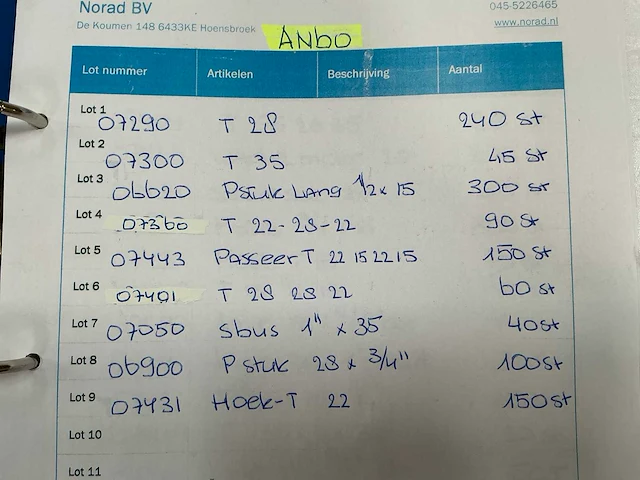 Norad BV
De Koumen 148 6433KE Hoensbroek
045-5226465
www.norad.nl
ANBO
Lot nummer Artikelen Beschrijving Aantal
Lot 1 07290 T 28 240 St
Lot 2 07300 T 35 45 St
Lot 3 06620 Pstuk Lang 1/2 x 15 300 St
Lot 4 07360 T 22-28-22 90 St
Lot 5 07443 Passeer T 22 15 22 15 150 St
Lot 6 07401 T 28 28 22 60 St
Lot 7 07050 Sbus 1" x 35 40 St
Lot 8 06900 P stuk 28 x 3/4" 100 St
Lot 9 07431 Hoek-T 22 150 St
Lot 10
Lot 11